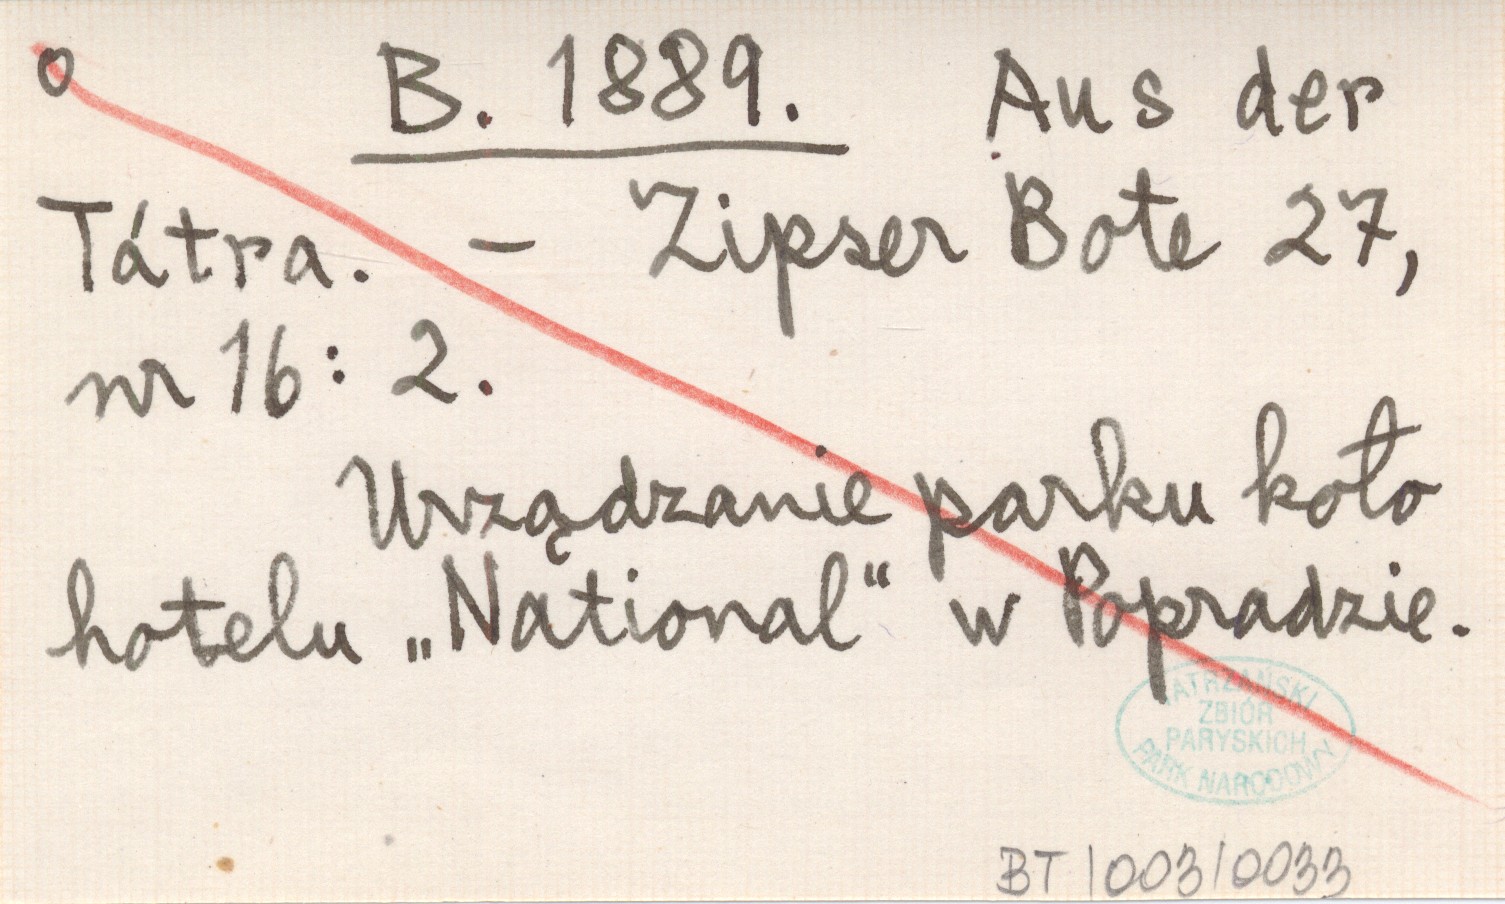 o B. 1889. Aus der
Tátra. – Zipser Bote 27,
nr 16: 2.
Urządzanie parku koło
hotelu „National“ w Popradzie.
TATRZAŃSKI
ZBIÓR
PARYSKICH
PARK NARODOWY
BT/003/0033